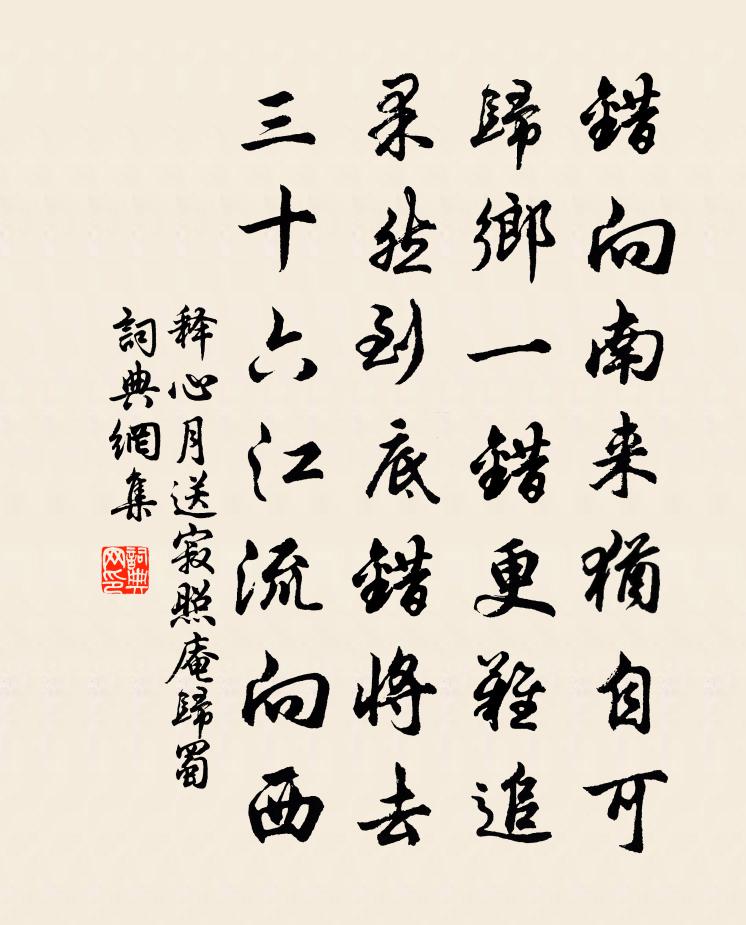 錯向南来猶自可
歸鄉一錯更難追
果然到底錯將去
三十六江流向西
释心月送寂照庵歸蜀
詞典網集
詞典網印